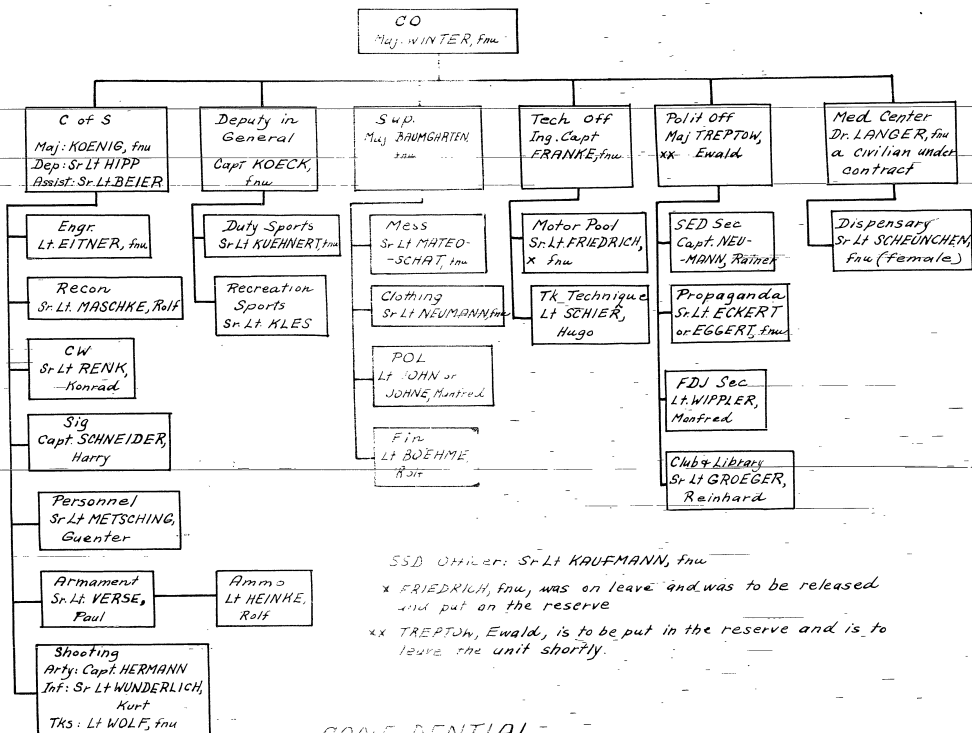 CO
Maj. WINTER, fnu
C of S
Maj: KOENIG, fnu
Dep: Sr Lt HIPP
Assist: Sr Lt BEIER
Engr.
Lt. EITNER, fnu
Recon
Sr Lt. MASCHKE, Rolf
CW
Sr Lt RENK,
Konrad
Sig
Capt. SCHNEIDER,
Harry
Personnel
Sr Lt METSCHING,
Guenter
Armament
Sr. Lt. VERSE,
Paul
Ammo
Lt HEINKE,
Rolf
Shooting
Arty: Capt. HERMANN
Inf: Sr Lt WUNDERLICH,
Kurt
Tks: Lt WOLF, fnu
Deputy in
General
Capt KOECK,
fnu
Duty Sports
Sr Lt KUEHNERT, fnu
Recreation
Sports
Sr Lt. KLES
Sup.
Maj BAUMGARTEN,
fnu
Mess
Sr Lt MATEO-
-SCHAT, fnu
Clothing
Sr Lt NEUMANN, fnu
POL
Lt JOHN or
JOHNE, Manfred
Fin
Lt BOEHME,
Rolf
Tech Off
Ing. Capt
FRANKE, fnu
Motor Pool
Sr. Lt. FRIEDRICH,
x fnu
Tk Technique
Lt SCHIER,
Hugo
Polit Off
Maj TREPTOW,
xx Ewald
SED Sec
Capt. NEU-
-MANN, Rainer
Propaganda
Sr. Lt. ECKERT
or EGGERT, fnu
FDJ Sec
Lt. WIPPLER,
Manfred
Club & Library
Sr Lt GROEGER,
Reinhard
Med Center
Dr. LANGER, fnu
a civilian under
contract
Dispensary
Sr Lt SCHEUNCHEN,
fnu (female)
SSD Officer: Sr Lt KAUFMANN, fnu
x FRIEDRICH, fnu, was on leave and was to be released
and put on the reserve
xx TREPTOW, Ewald, is to be put in the reserve and is to
leave the unit shortly.